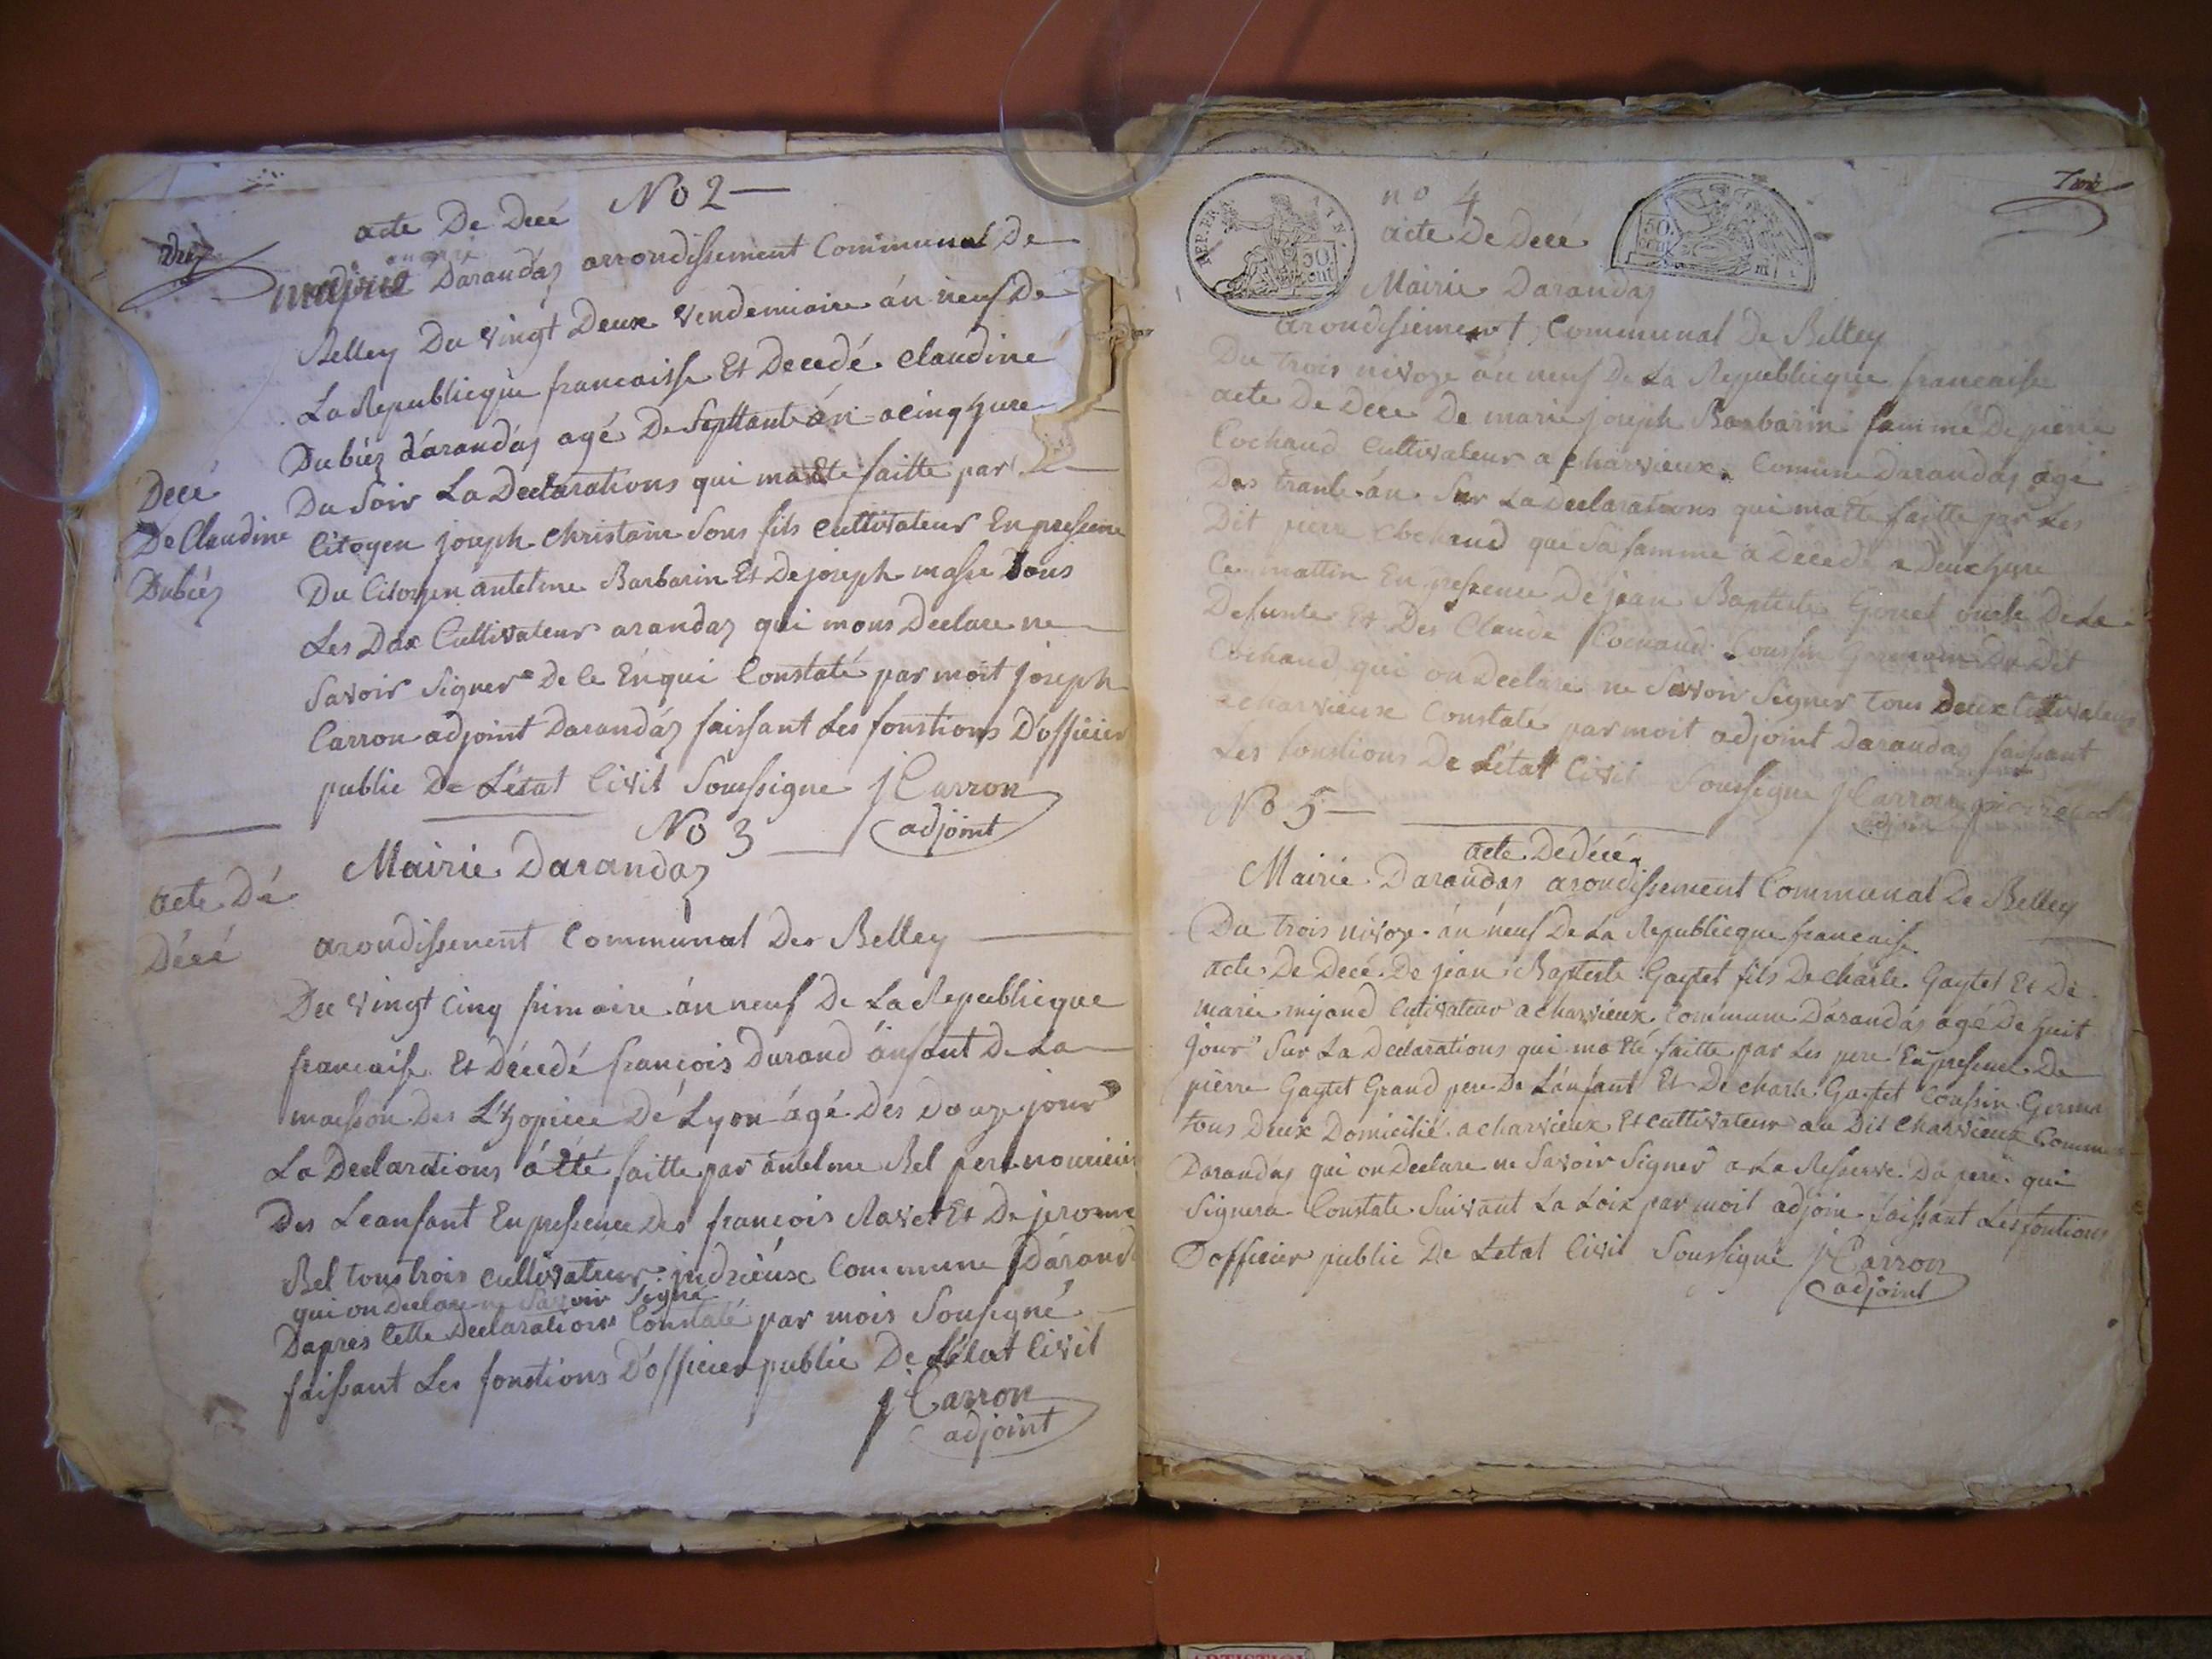 No 2 —
acte De Decé
mairie Darandas arrondissement Communal De
Belley Du vingt Deux vendemiaire án neuf De
La Republicque francaisse Et Decedé claudine
Dubiéz d'arandas agé De Septtante án a cinq hure
Du Soir La Declarations qui ma Eté faitte par Le
Citoyen joseph christain Sons fils cultivateur En pressence
Du Citoyen antelme Barbarin Et De joseph masse Tous
Les Dox Cultivateur arandaz qui mons Declare ne
Savoir Signer De Ce Enqui Constaté par moit joseph
Carron adjoint Darandáz faissant Les fonstions D'officier
public De L'état Civil Soussigne j Carron
adjoint
Decé
De Claudine
Dubiéz
No 3
Mairie Darandaz
acte Dé
Décé
arondissement Communal Des Belley
Du vingt cinq frimaire án neuf De La Republicque
francaise Et Décedé françois Durand ánfant De La
maisson Des L'hopicee Dé Lyon ágé Des douze jour
La Declarations á été faitte par ántelme Bel pere nouricier
Des Leanfant En pressence Des françois Ravet Et De jerome
Bel tous trois cultivateur judrieux Commune Dárand
qui on declare ne Savoir Signe
Dapres Cette Declarations Constaté par mois Sousigné
faissant Les fonstions D'officier public De L'état Civil
j Carron
adjoint
REP. FRA
50
cent
50
cent
Trois
no 4
acte De Decé
Mairie Darandaz
arondissement Communal De Belley
Du trois nivoze án neuf De La Republicque francaisse
acte De Dece De marie joseph Barbarin famme De pierre
Cochaud Cultivateur a Charvieux Comune Darandas agé
Des trante án Sur La Declarations qui ma été faitte par Les
Dit pierre Cochaud que Sa famme a Décedé a Deux hure
Ce mattin En pressence De jean Baptiste Goyet oncle De La
Defunte Et Des Claude Cochaud Coussin Germain Du Dit
Cochaud qui on Declaré ne Savoir Signer tous Deux Cultivateur
a charvieux Constaté par moit adjoint Darandas faissant
Les fonstions De L'état Civil Soussigne j Carron
adjoin
No 5 —
acte De décé
Mairie Darandas arondissement Communal De Belley
Du trois nivoze án néuf De La Republicque francaise
acte De Decé De jean Baptiste Gaytet fils De charle Gaytet Et De
marie mijand Cutivateur a charvieux Commune Dárandás agé De huit
jour Sur La Declarations qui ma été faitte par Les pere En presence De
pierre Gaytet Grand pere De L'anfant Et De charle Gaytet Coussin Germa
tous Deux Domicilié a charvieux Et cultivateur au Dit Charvieux Commun
Darandas qui on Declare ne Savoir Signer a La Resserve Du pere qui
Signera Constate Suivant La Loix par moit adjoin faissant Les fontions
D'officier public De Letat Civil Soussigne j Carron
adjoint